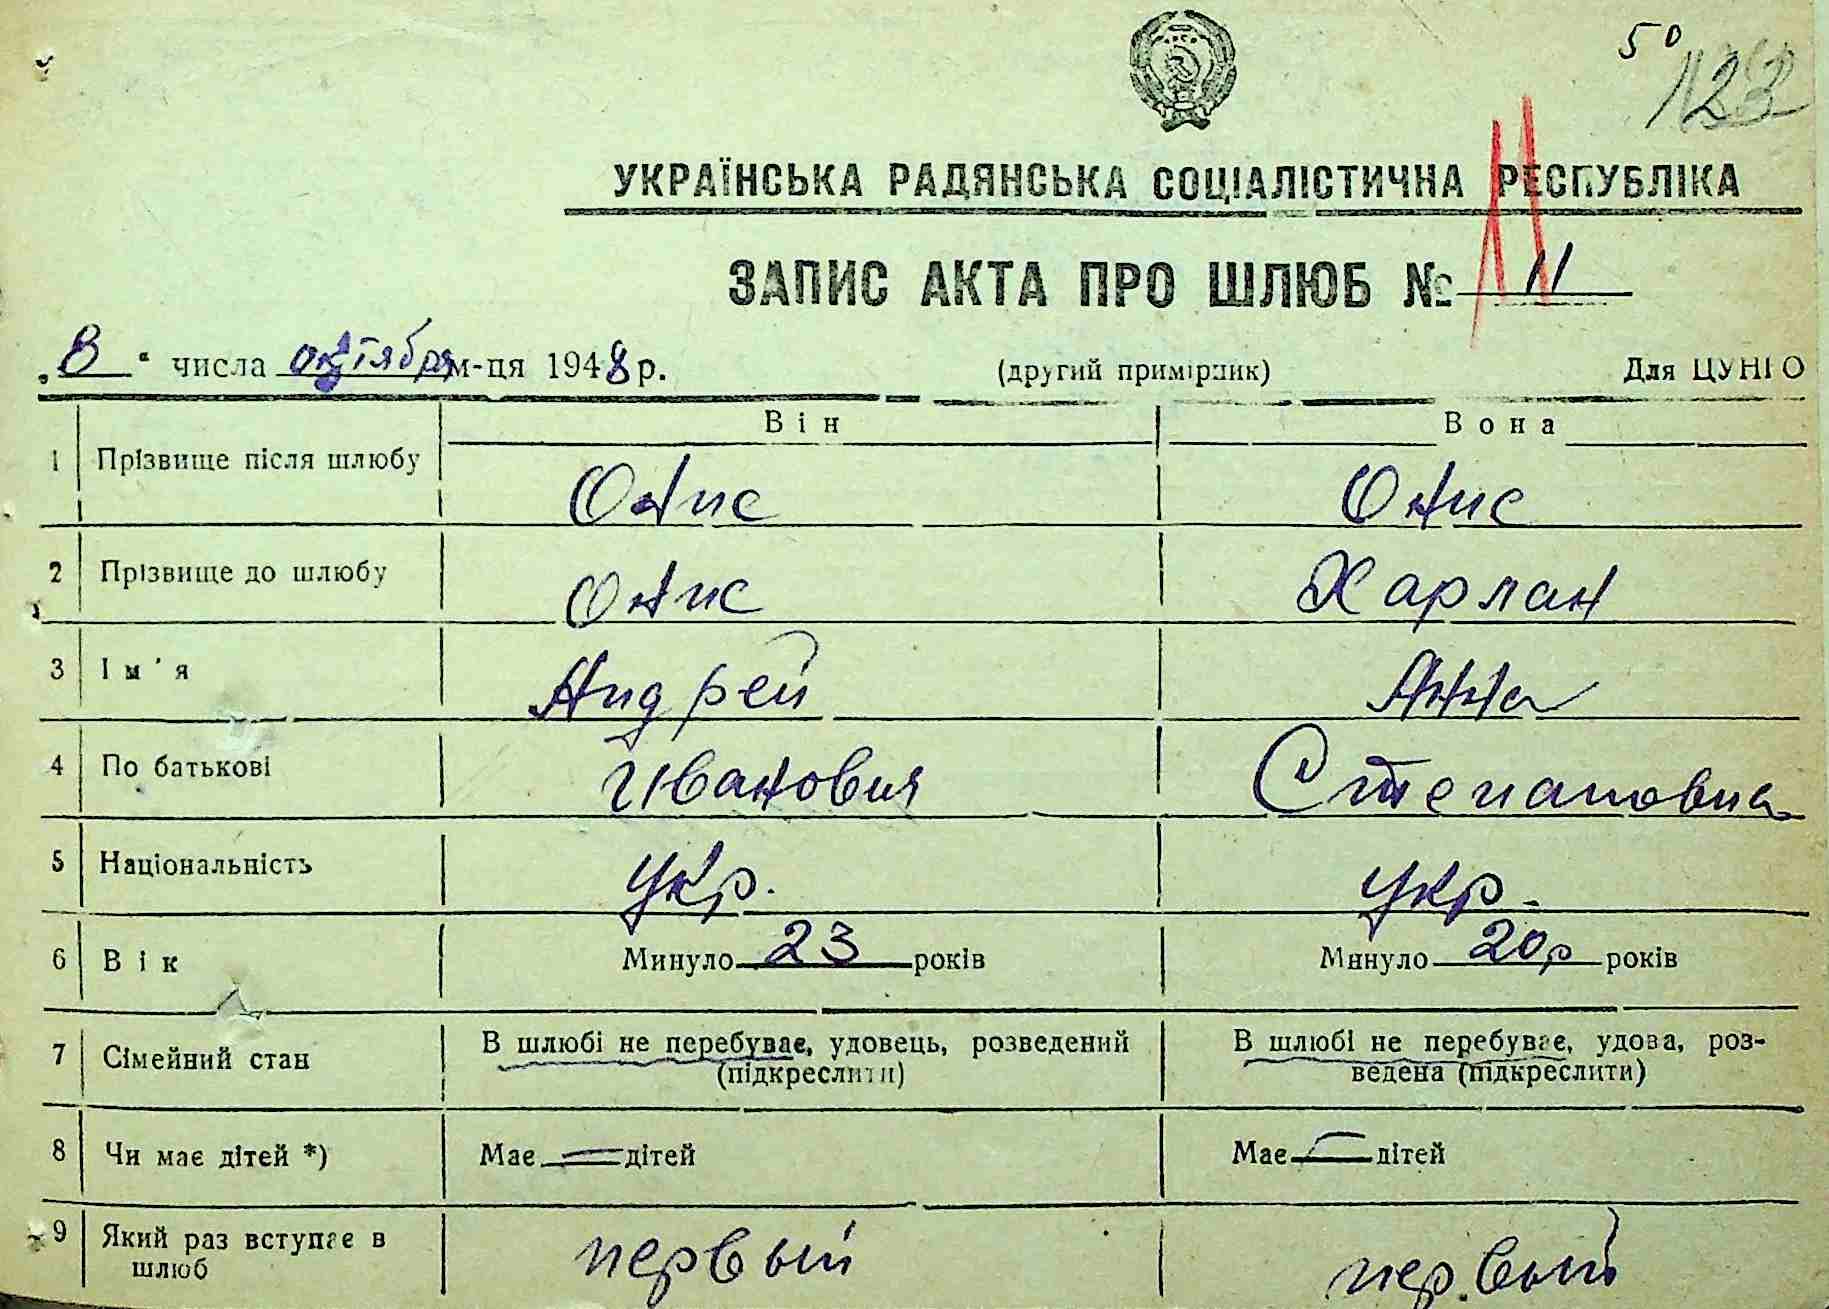 50
123
УКРАЇНСЬКА РАДЯНСЬКА СОЦІАЛІСТИЧНА РЕСПУБЛІКА
ЗАПИС АКТА ПРО ШЛЮБ № 11
„8“ числа октября м-ця 1948 р. (другий примірник) Для ЦУНГО
Він Вона
1 Прізвище після шлюбу Онис Онис
2 Прізвище до шлюбу Онис Харлан
3 Ім'я Андрей Анна
4 По батькові Иванович Степановна
5 Національність укр. укр.
6 Вік Минуло 23 років Минуло 20 р років
7 Сімейний стан В шлюбі не перебуває, удовець, розведений В шлюбі не перебуває, удова, роз-
(підкреслити) ведена (підкреслити)
8 Чи має дітей *) Має — дітей Має — дітей
9 Який раз вступає в первый первый
шлюб